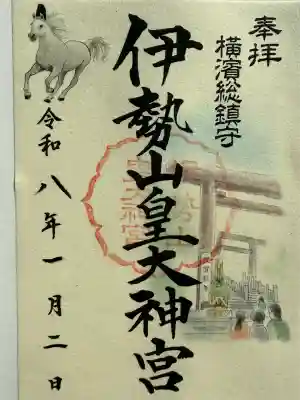 奉拝
横濱総鎮守
伊勢山皇大神宮
令和八年一月二日